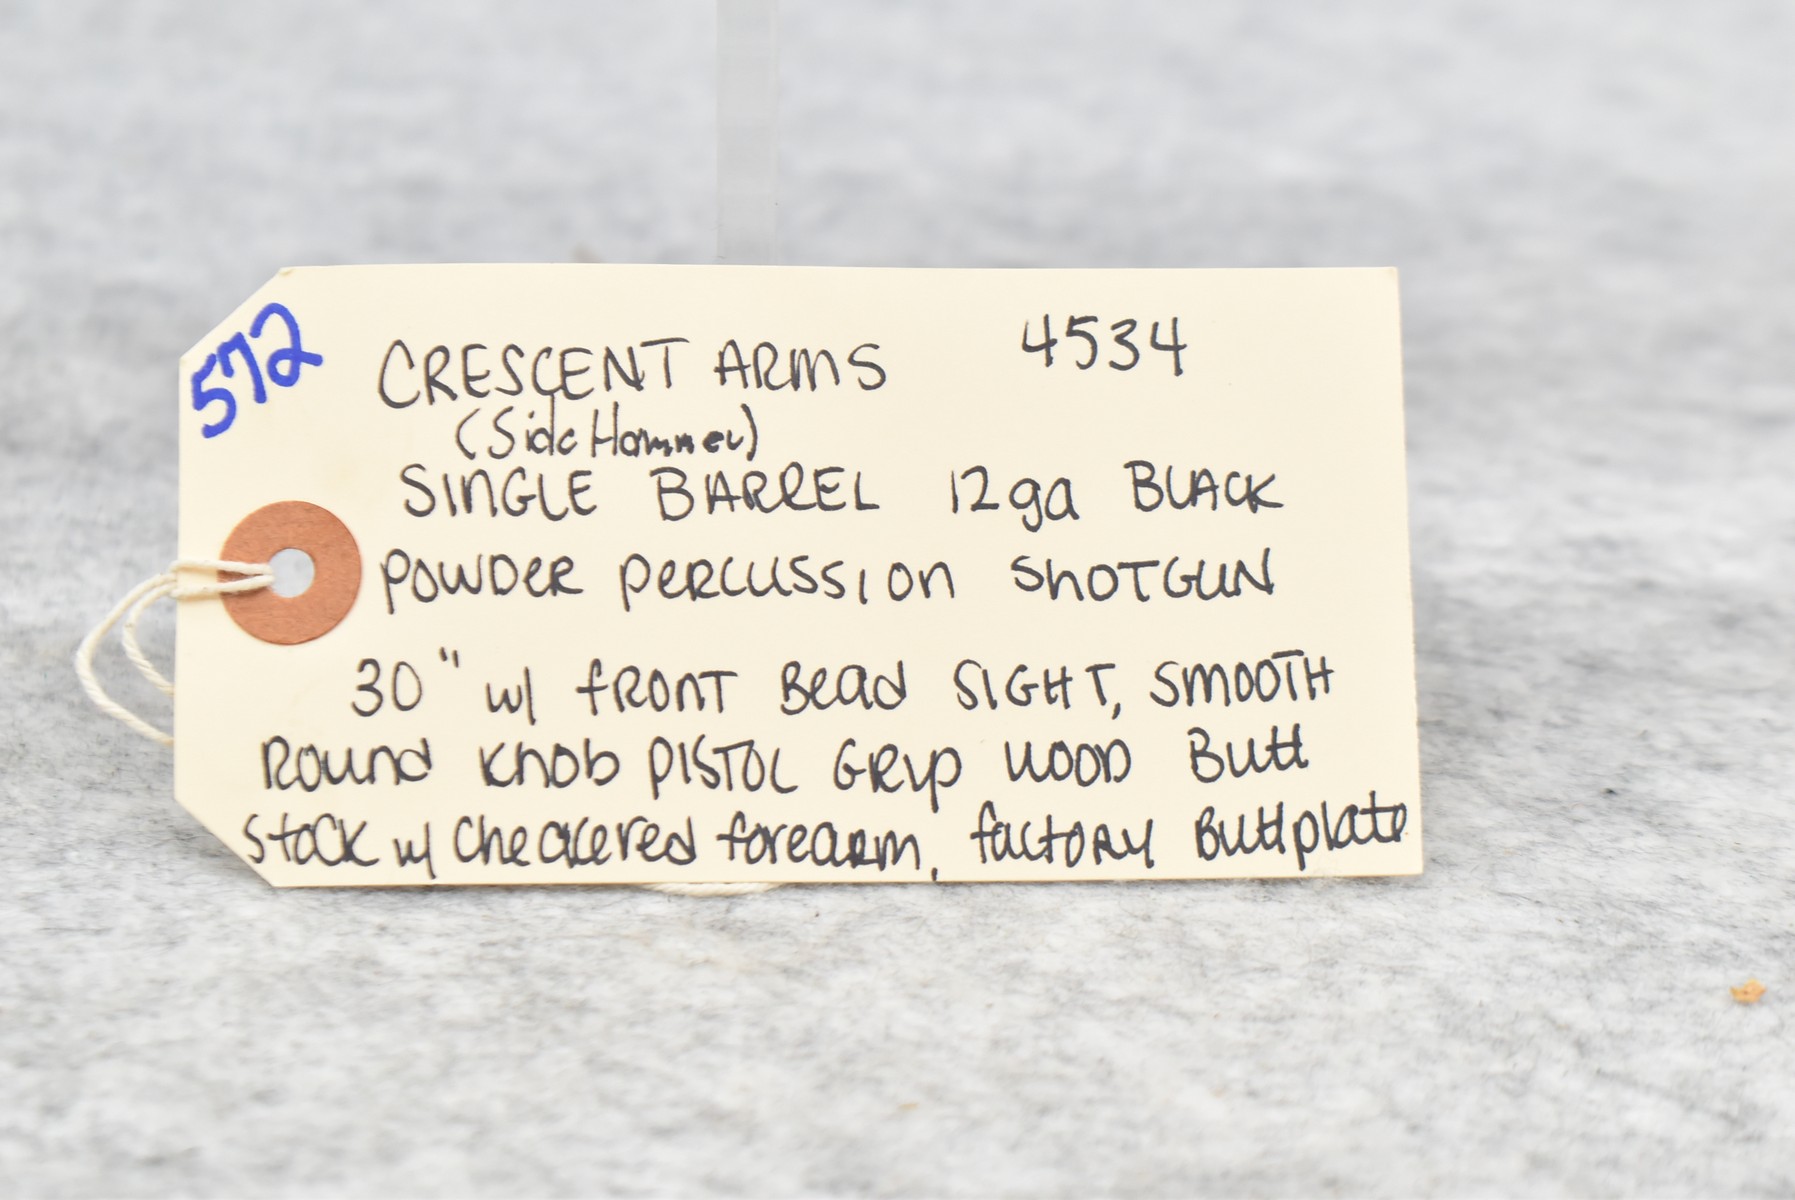 572
CRESCENT ARMS 4534
(Side Hammer)
SINGLE BARREL 12ga BLACK
POWDER PERCUSSION SHOTGUN
30" w/ FRONT BEAD SIGHT, SMOOTH
ROUND KNOB PISTOL GRIP WOOD BUTT
STOCK w/ Checkered forearm, factory Buttplate